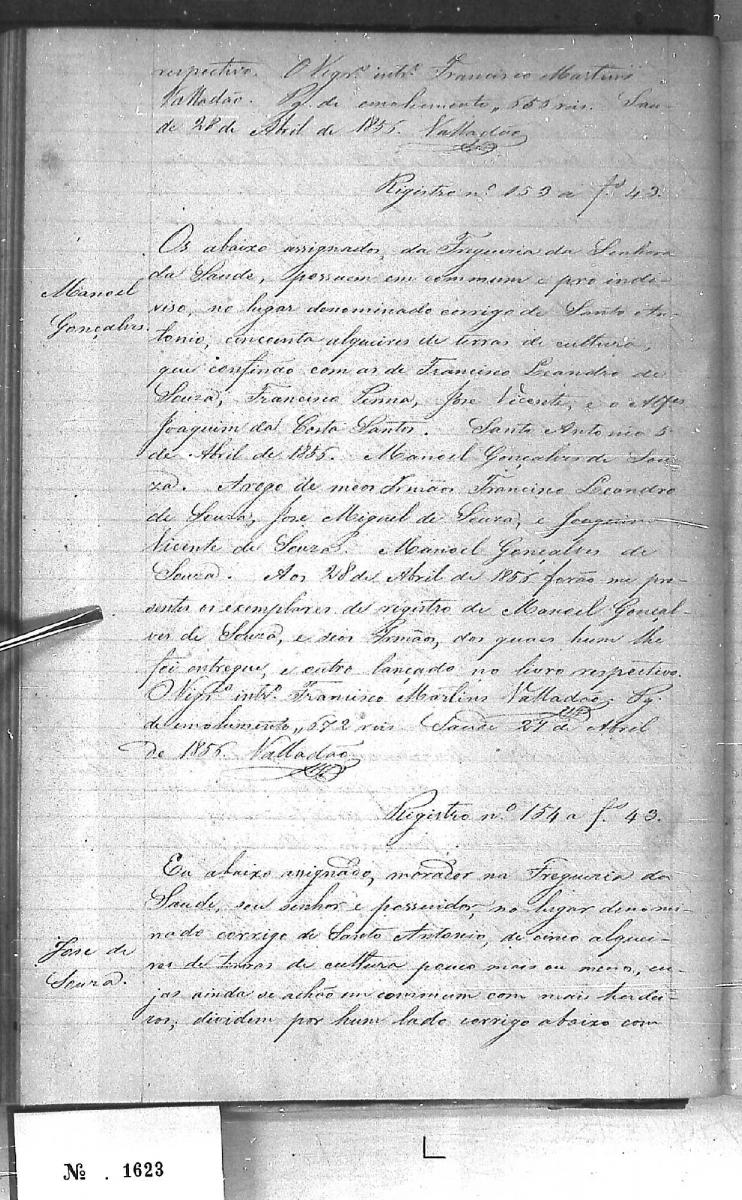 respectivo. O Vigrº. intrº. Francisco Martins
Valladão. Pg. de emolumento,, 650 reis. Sau-
de 28 de Abril de 1856. Valladão
Registro nº 153 a fº 43.
Os abaixo assignados, da Freguezia da Senhora
da Saude, possuem em commum e pro inde-
viso, no lugar denominado corrigo de Santo An-
tonio, cincoenta alqueires de terras de cultura,
que confinão com as de Francisco Leandro de
Souza, Francisco Penna, José Vicente, e o Alfes
Joaquim da Costa Santos. Santo Antonio 5
de Abril de 1856. Manoel Gonçalves de Sou-
za. Arogo de meos Irmãos Francisco Leandro
de Souza, José Miguel de Souza, e Joaquim
Vicente de Souza. Manoel Gonçalves de
Souza. Aos 28 de Abril de 1856 forão me pre-
sentes os exemplares de registro de Manoel Gonçal-
ves de Souza, e seos Irmãos, dos quaes hum lhe
foi entregue, e outro lançado no livro respectivo.
O Vigrº. intrº. Francisco Martins Valladão. Pg.
de emolumento,, 672 reis. Saude 27 de Abril
de 1856. Valladão
Manoel
Gonçalves.
Registro nº 154 a fº 43.
Eu abaixo assignado, morador na Freguezia da
Saude, sou senhor e possuidor, no lugar denomi-
nado corrigo de Santo Antonio, de cinco alquei-
res de terras de cultura pouco mais ou menos, cu-
jas ainda se achão em commum com mais herdei-
ros, dividem por hum lado corrigo abaixo com
José de
Souza.
Nº . 1623